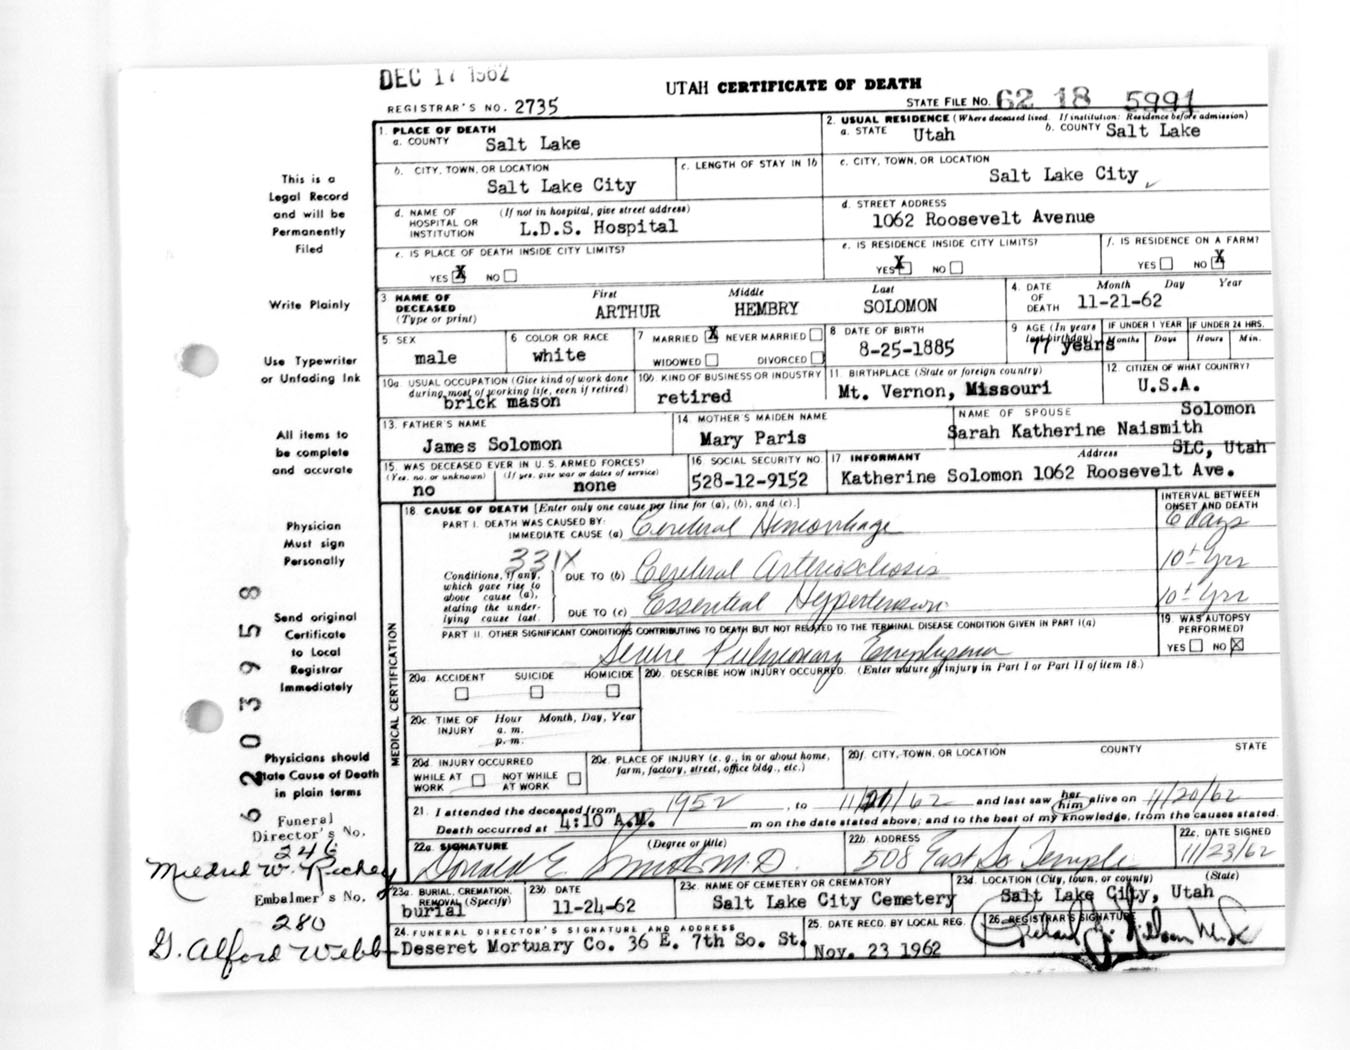 DEC 17 1962
UTAH CERTIFICATE OF DEATH
REGISTRAR'S NO. 2735
STATE FILE NO. 62 18 5991
1. PLACE OF DEATH
a. COUNTY Salt Lake
2. USUAL RESIDENCE (Where deceased lived. If institution: Residence before admission)
a. STATE Utah b. COUNTY Salt Lake
b. CITY, TOWN, OR LOCATION
Salt Lake City
c. LENGTH OF STAY IN 1b
c. CITY, TOWN, OR LOCATION
Salt Lake City
d. NAME OF HOSPITAL OR INSTITUTION (If not in hospital, give street address)
L.D.S. Hospital
d. STREET ADDRESS
1062 Roosevelt Avenue
e. IS PLACE OF DEATH INSIDE CITY LIMITS?
YES X NO
e. IS RESIDENCE INSIDE CITY LIMITS?
YES X NO
f. IS RESIDENCE ON A FARM?
YES NO X
3 NAME OF DECEASED (Type or print)
First Middle Last
ARTHUR HEMBRY SOLOMON
4. DATE OF DEATH Month Day Year
11-21-62
5 SEX
male
6 COLOR OR RACE
white
7 MARRIED X NEVER MARRIED
WIDOWED DIVORCED
8 DATE OF BIRTH
8-25-1885
9 AGE (In years last birthday)
77 years
IF UNDER 1 YEAR
Months Days
IF UNDER 24 HRS.
Hours Min.
10a. USUAL OCCUPATION (Give kind of work done during most of working life, even if retired)
brick mason
10b. KIND OF BUSINESS OR INDUSTRY
retired
11. BIRTHPLACE (State or foreign country)
Mt. Vernon, Missouri
12. CITIZEN OF WHAT COUNTRY?
U.S.A.
13. FATHER'S NAME
James Solomon
14. MOTHER'S MAIDEN NAME
Mary Paris
NAME OF SPOUSE Solomon
Sarah Katherine Naismith
15. WAS DECEASED EVER IN U. S. ARMED FORCES?
(Yes, no, or unknown) (If yes, give war or dates of service)
no none
16 SOCIAL SECURITY NO.
528-12-9152
17 INFORMANT Address SLC, Utah
Katherine Solomon 1062 Roosevelt Ave.
18 CAUSE OF DEATH [Enter only one cause per line for (a), (b), and (c).]
INTERVAL BETWEEN ONSET AND DEATH
PART I. DEATH WAS CAUSED BY:
IMMEDIATE CAUSE (a) Cerebral Hemorrhage 6 days
331X
Conditions, if any, which gave rise to above cause (a), stating the underlying cause last.
DUE TO (b) Cerebral Arteriosclerosis 10± yrs
DUE TO (c) Essential Hypertension 10± yrs
PART II. OTHER SIGNIFICANT CONDITIONS CONTRIBUTING TO DEATH BUT NOT RELATED TO THE TERMINAL DISEASE CONDITION GIVEN IN PART I(a)
Severe Pulmonary Emphysema
19. WAS AUTOPSY PERFORMED?
YES NO X
MEDICAL CERTIFICATION
20a. ACCIDENT SUICIDE HOMICIDE
20b. DESCRIBE HOW INJURY OCCURRED. (Enter nature of injury in Part I or Part II of item 18.)
20c. TIME OF INJURY Hour Month, Day, Year
a. m.
p. m.
20d. INJURY OCCURRED
WHILE AT WORK NOT WHILE AT WORK
20e. PLACE OF INJURY (e. g., in or about home, farm, factory, street, office bldg., etc.)
20f. CITY, TOWN, OR LOCATION COUNTY STATE
21. I attended the deceased from 1952, to 11/20/62 and last saw her him alive on 11/20/62
Death occurred at 4:10 A.M. m on the date stated above; and to the best of my knowledge, from the causes stated.
22a. SIGNATURE (Degree or title)
Donald E. Smith M.D.
22b. ADDRESS
508 East So Temple
22c. DATE SIGNED
11/23/62
23a. BURIAL, CREMATION, REMOVAL (Specify)
burial
23b. DATE
11-24-62
23c. NAME OF CEMETERY OR CREMATORY
Salt Lake City Cemetery
23d. LOCATION (City, town, or county) (State)
Salt Lake City, Utah
24. FUNERAL DIRECTOR'S SIGNATURE AND ADDRESS
Deseret Mortuary Co. 36 E. 7th So. St.
25. DATE RECD. BY LOCAL REG.
Nov. 23 1962
26. REGISTRAR'S SIGNATURE
This is a
Legal Record
and will be
Permanently
Filed
Write Plainly
Use Typewriter
or Unfading Ink
All items to
be complete
and accurate
Physician
Must sign
Personally
Send original
Certificate
to Local
Registrar
Immediately
Physicians should
state Cause of Death
in plain terms
62 203958
Funeral
Director's No.
246
Mildred W. Richey
Embalmer's No.
280
G. Alford Webb